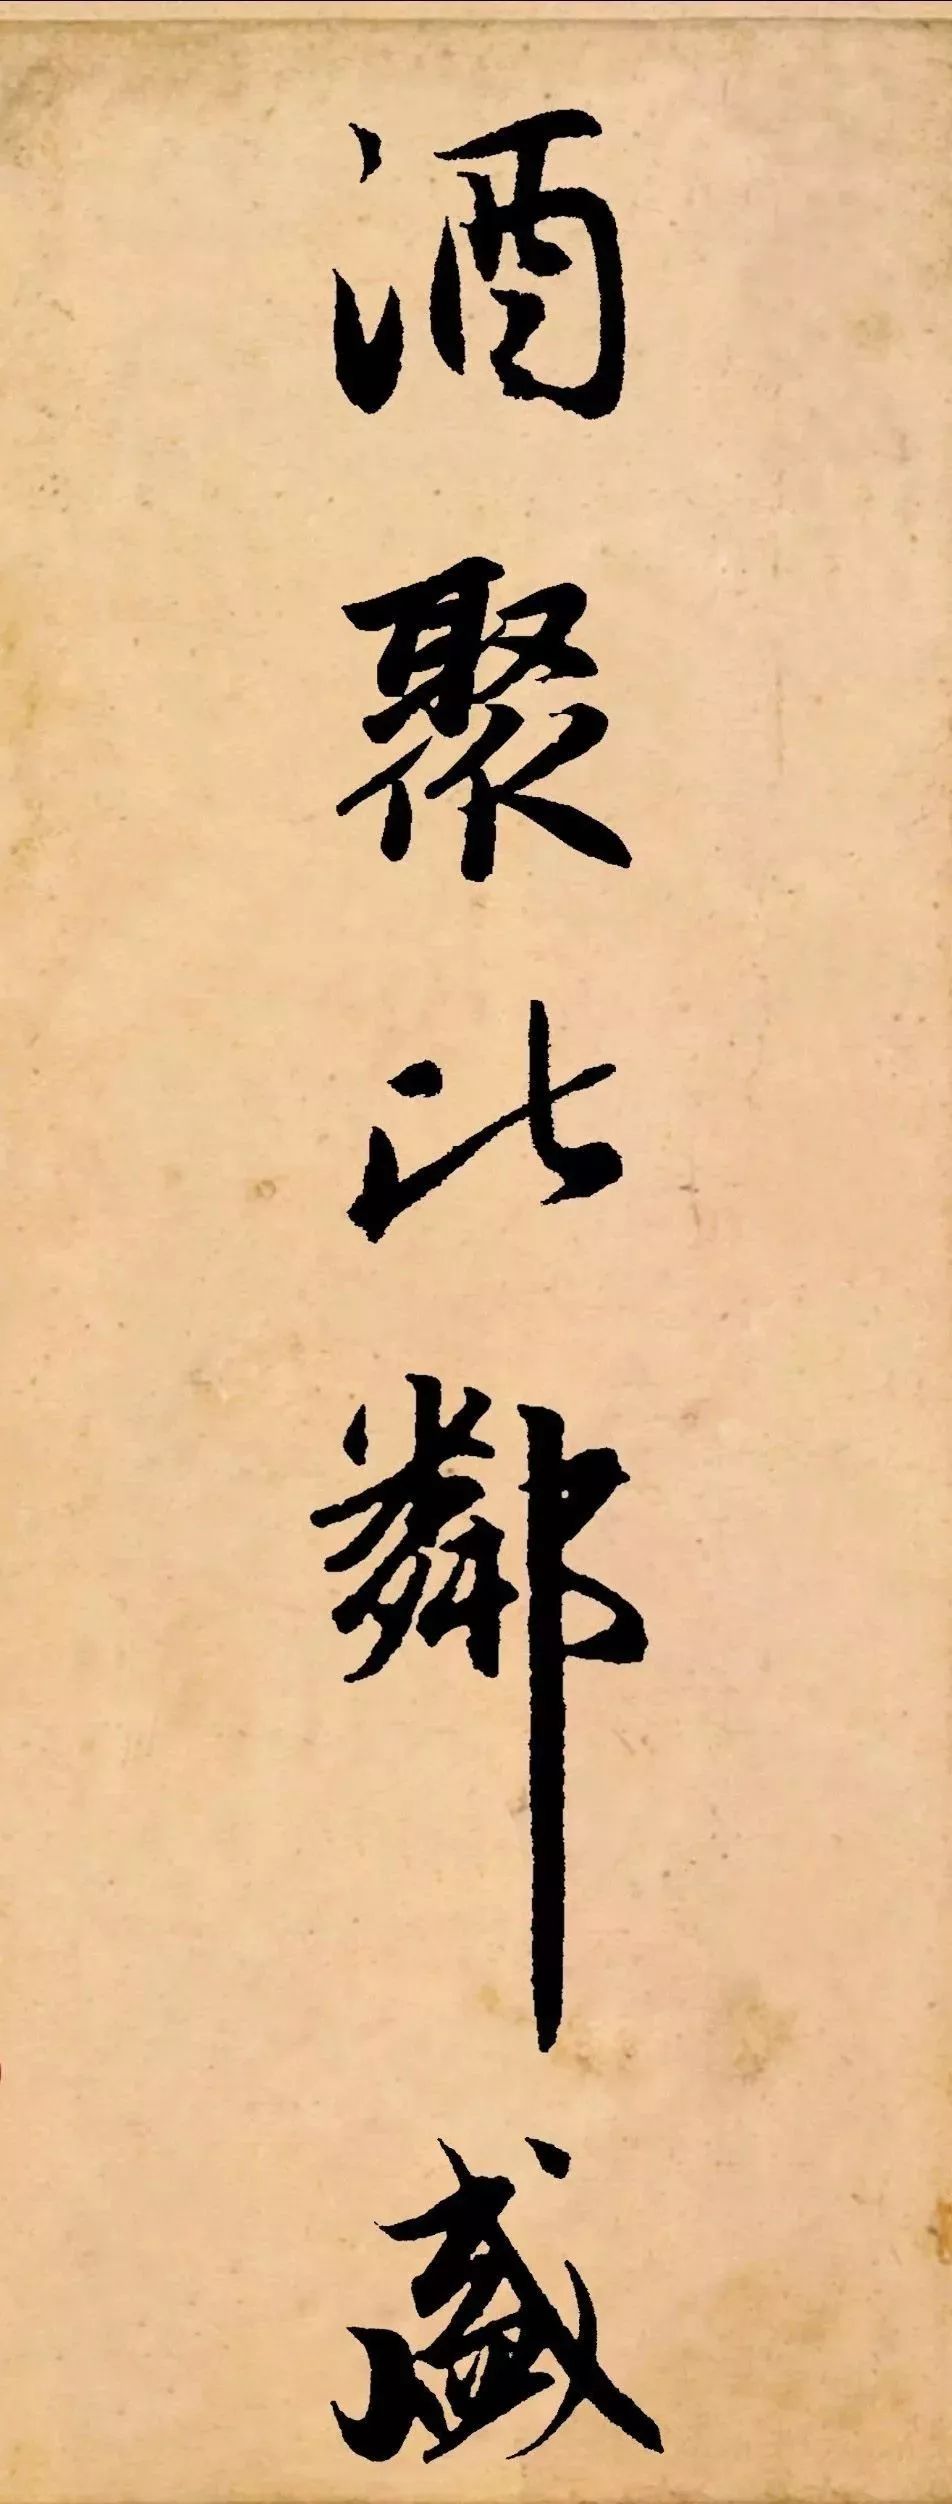 酒聚比鄰盛